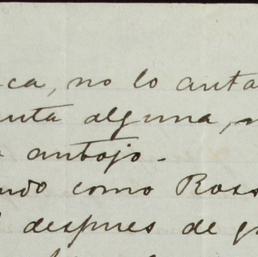 ca, no lo anta
enta alguna,
antojo.-
ndo como Ross
despues de g